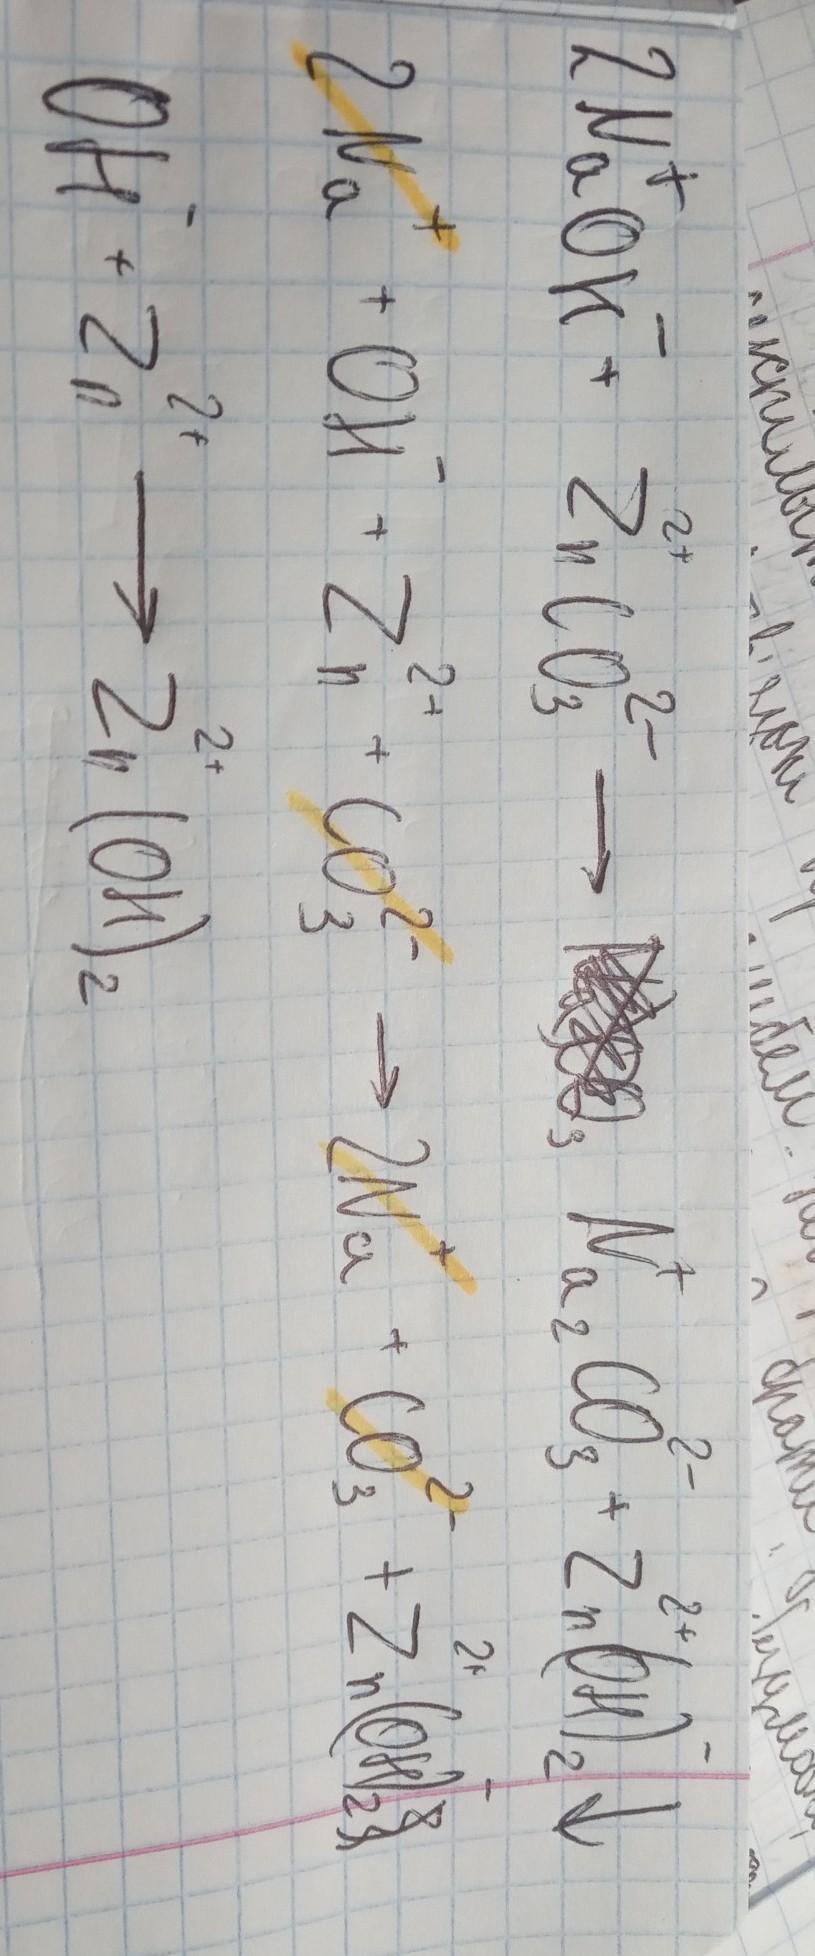 2Na⁺OH⁻ + Zn²⁺CO₃²⁻ → Na₂⁺CO₃²⁻ + Zn²⁺(OH)₂⁻↓
2Na⁺ + OH⁻ + Zn²⁺ + CO₃²⁻ → 2Na⁺ + CO₃²⁻ + Zn²⁺(OH)₂⁻
OH⁻ + Zn²⁺ → Zn²⁺(OH)₂